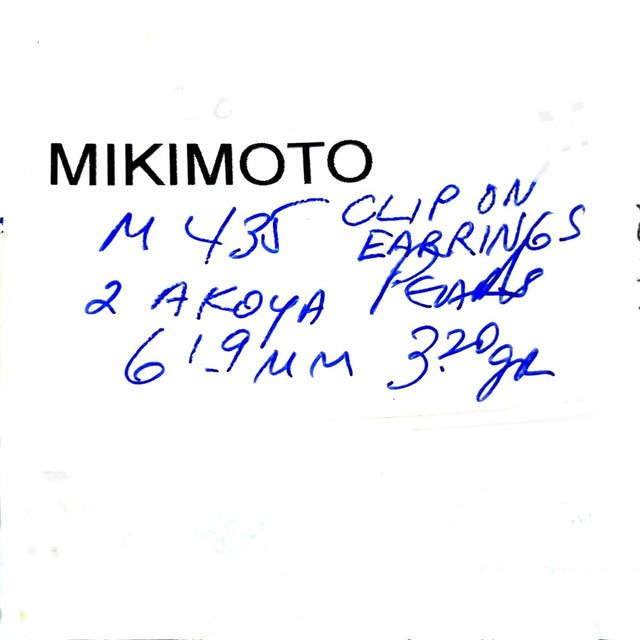 MIKIMOTO
M 435 CLIP ON EARRINGS
2 AKOYA PEARLS
6.9 MM 3.20 gr